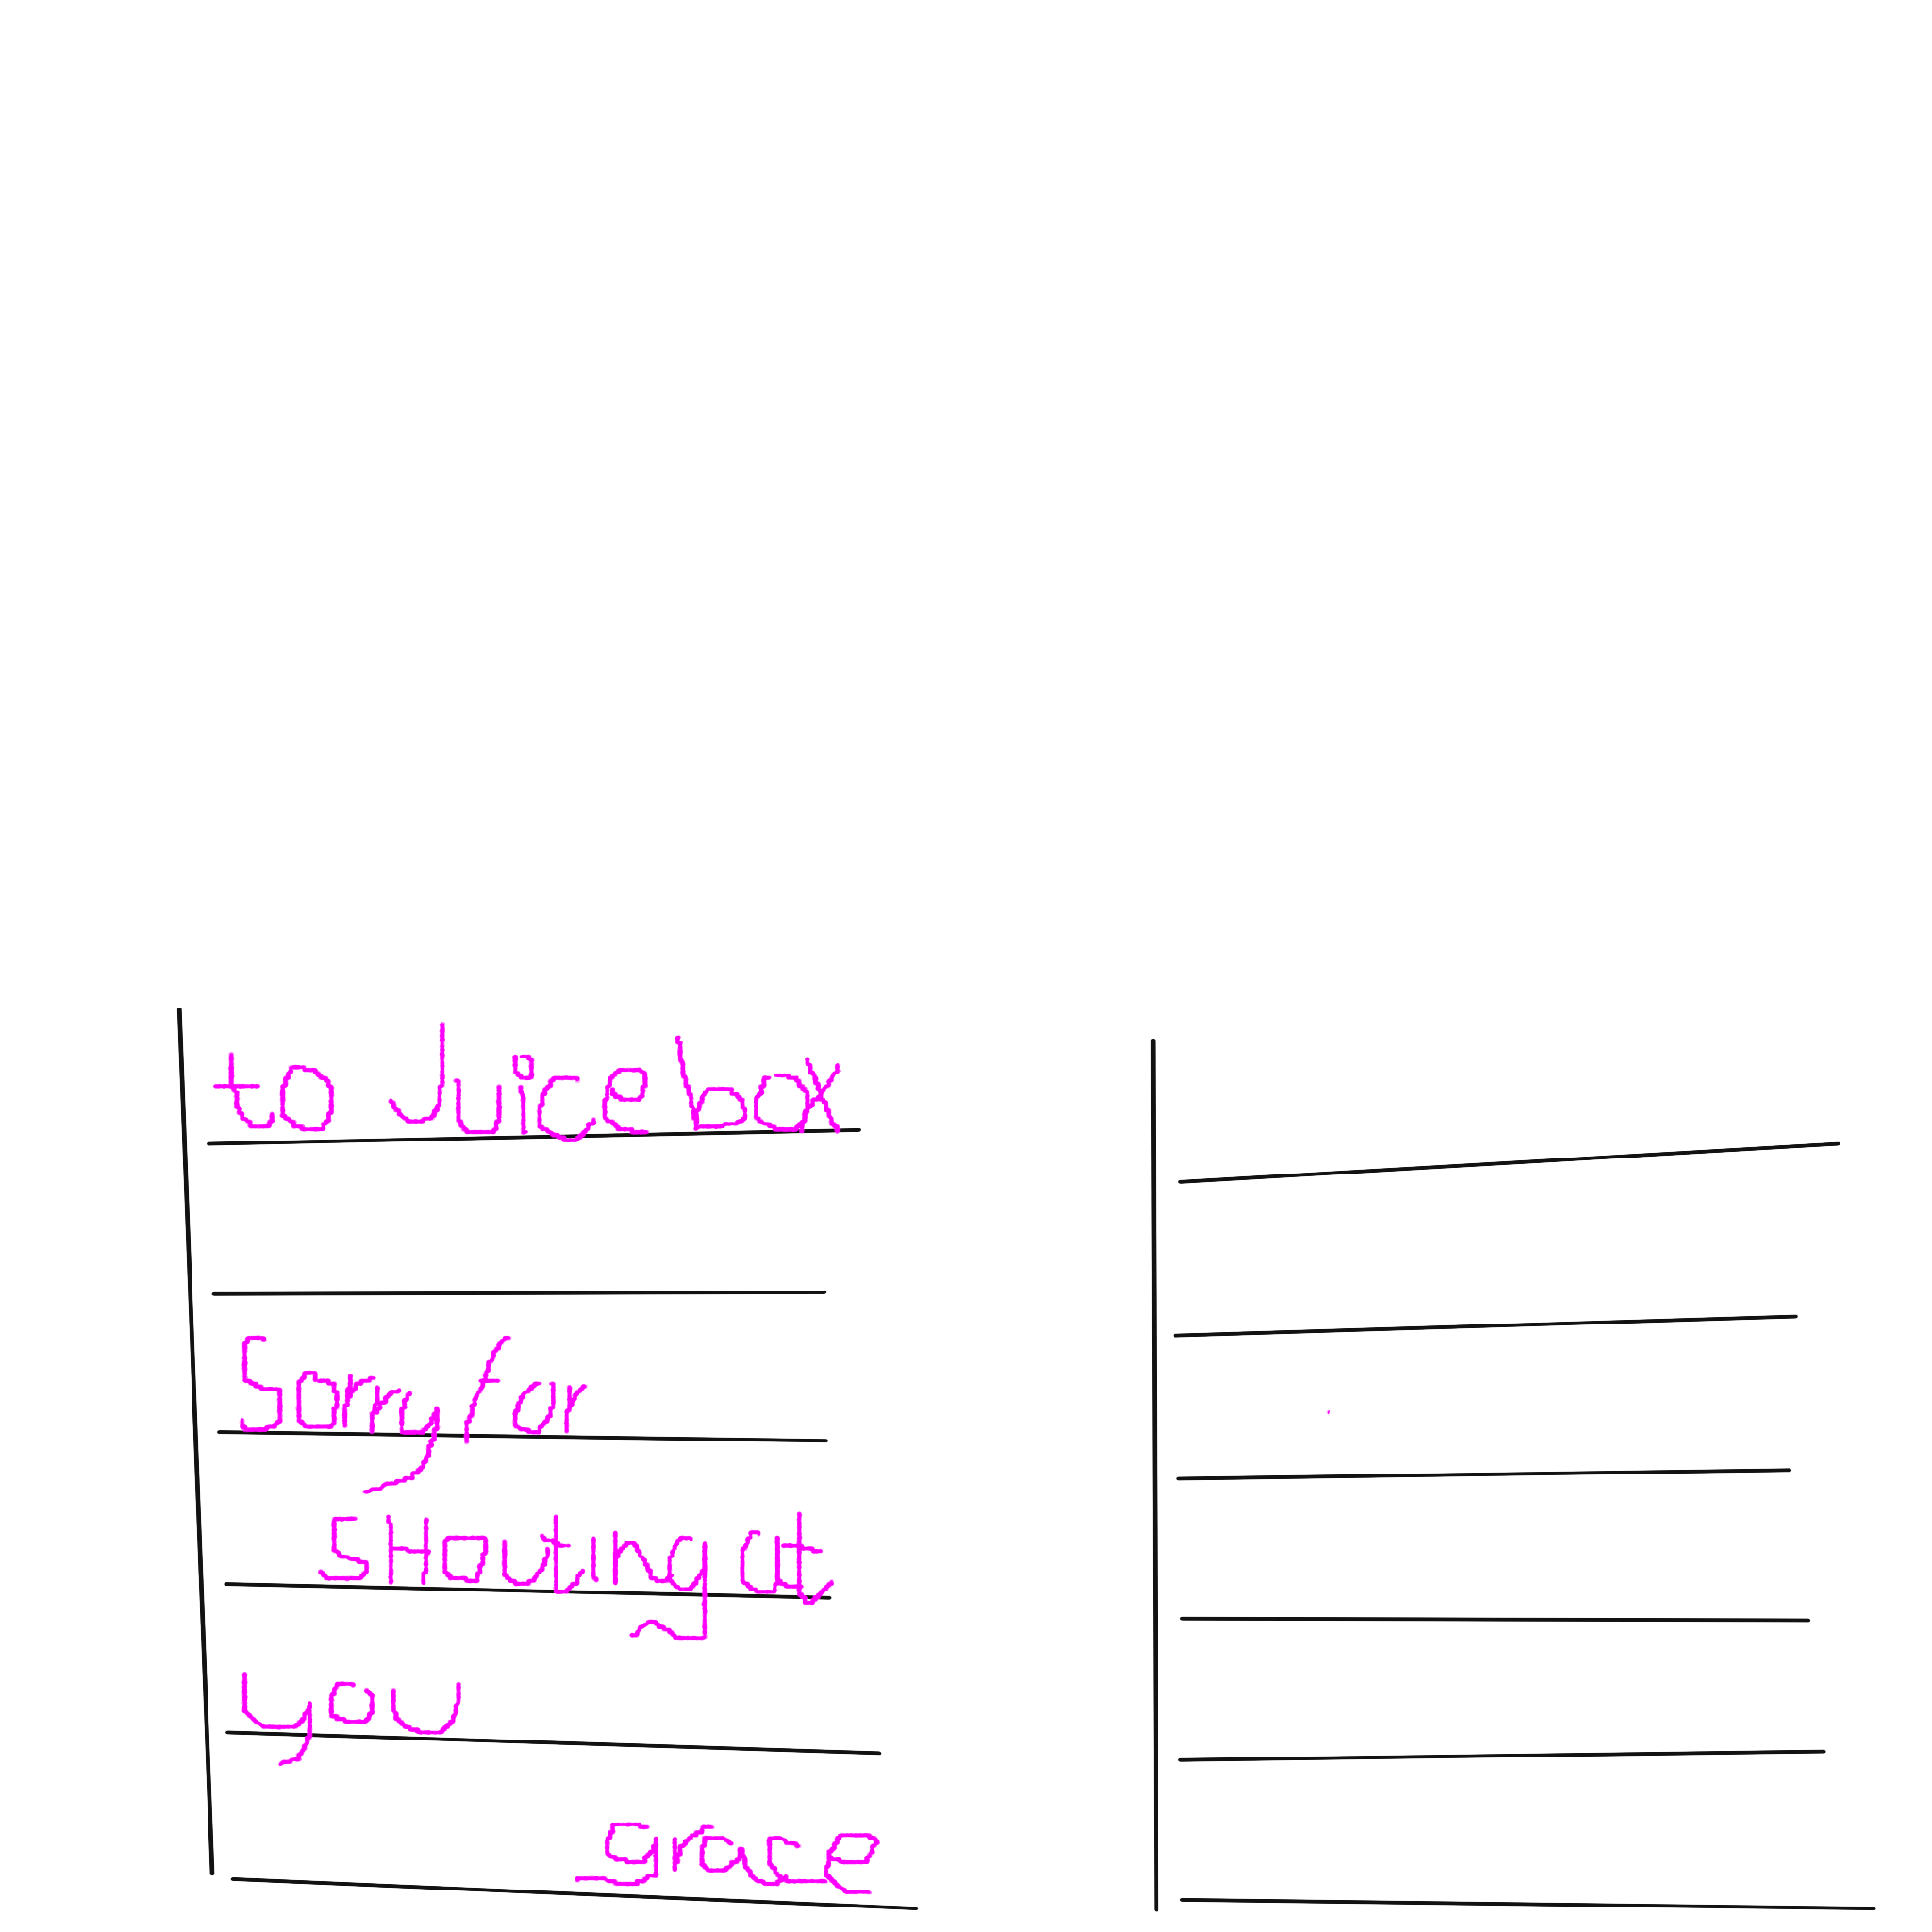 to Juicebox
Sorry for
sHouting at
you
grace